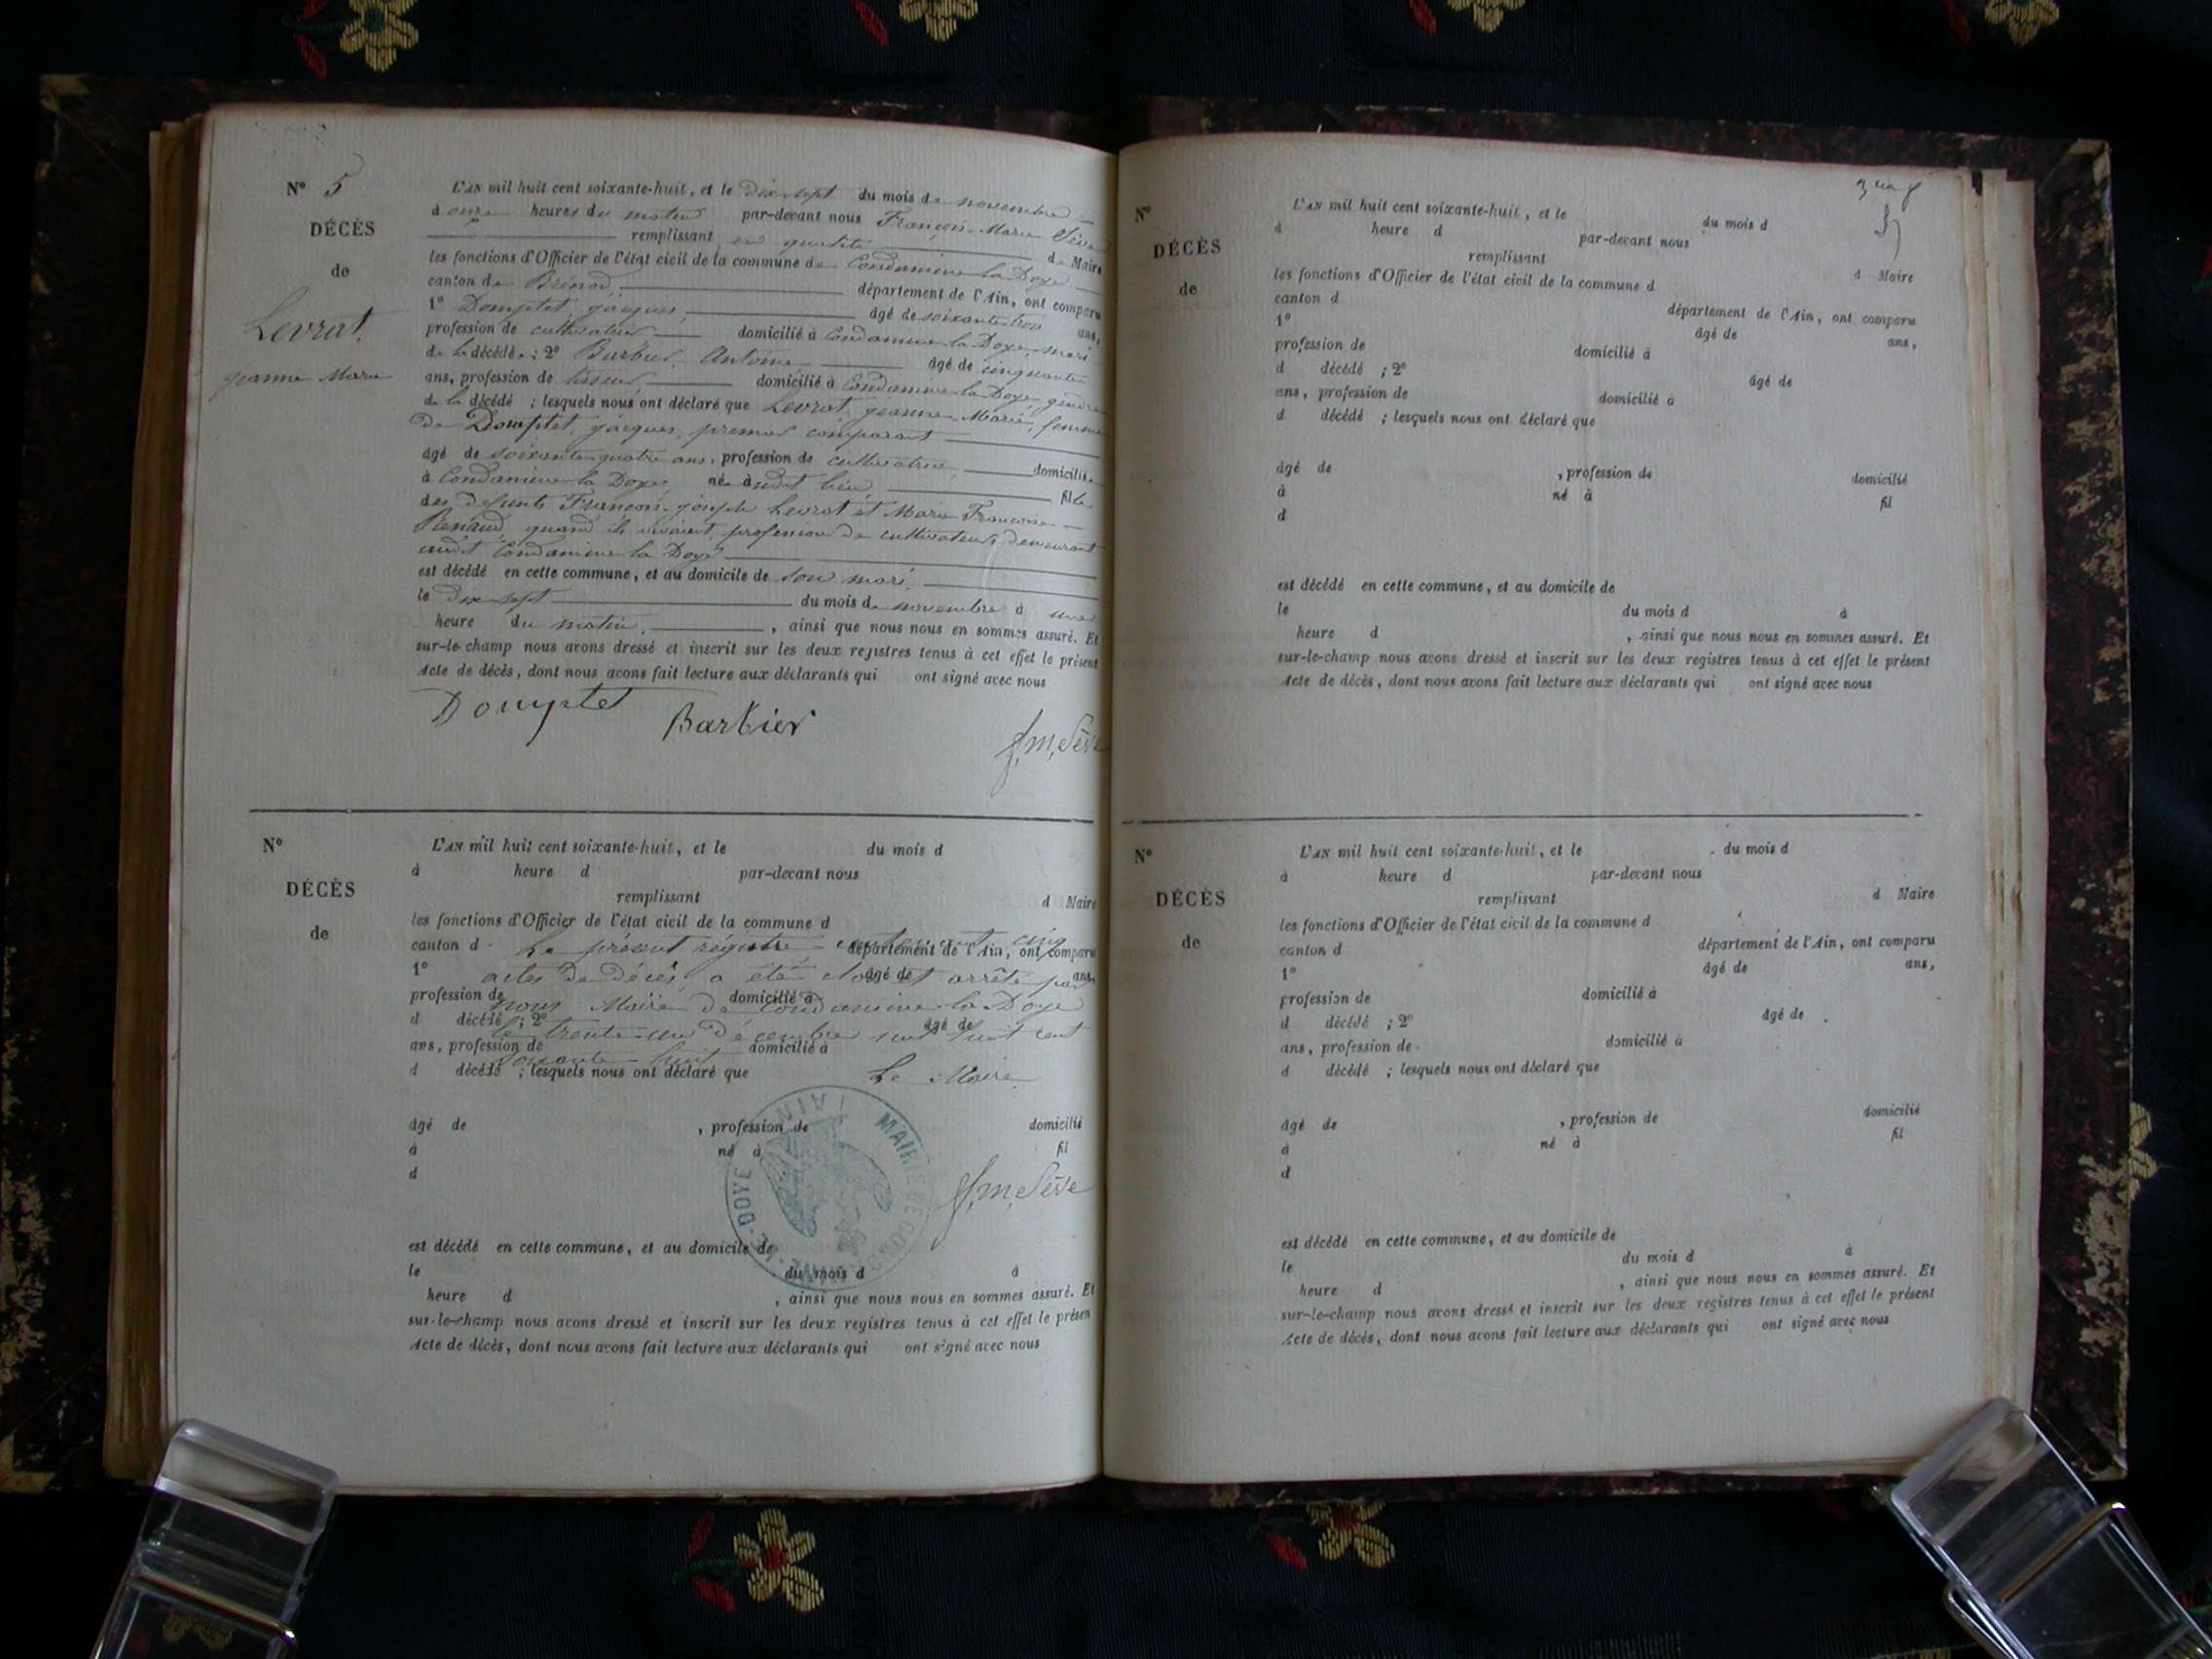 N° 5
DÉCÈS
de
Levrat,
jeanne Marie
L'AN mil huit cent soixante-huit, et le dix-sept du mois de novembre
à onze heures du matin par-devant nous François-Marie Sève
remplissant en qualité de Maire
les fonctions d'Officier de l'état civil de la commune de Condamine la Doye
canton de Brénod département de l'Ain, ont comparu
1° Domptet, jacques, âgé de soixante-trois ans,
profession de cultivateur domicilié à Condamine la Doye, mari
de la décédée ; 2° Barbier, Antoine âgé de cinquante
ans, profession de domicilié à Condamine la Doye, gendre
de la décédé ; lesquels nous ont déclaré que Levrat, jeanne-Marie, femme
de Domptet, jacques, premier comparant
âgé de soixante-quatre ans, profession de cultivatrice, domiciliée
à Condamine la Doye née audit lieu fille
des défunts François-joseph Levrat et Marie Françoise
Renaud, quand ils vivaient, profession de cultivateurs demeurant
audit Condamine la Doye
est décédé en cette commune, et au domicile de son mari
le dix-sept du mois de novembre à une
heure du matin, , ainsi que nous nous en sommes assuré. Et
sur-le-champ nous avons dressé et inscrit sur les deux registres tenus à cet effet le présent
Acte de décès, dont nous avons fait lecture aux déclarants qui ont signé avec nous
Domptet Barbier f, m, Sève
N°
DÉCÈS
de
L'AN mil huit cent soixante-huit, et le du mois d
à heure d par-devant nous
remplissant d Maire
les fonctions d'Officier de l'état civil de la commune d
canton d département de l'Ain, ont comparu
Le présent registre contenant cinq
1° âgé de ans,
actes de décès, a été clos et arrêté par
profession de domicilié à
nous Maire de Condamine la Doye
d décédé ; 2° âgé de
le trente-un décembre mil huit cent
ans, profession de domicilié à
soixante-huit
d décédé ; lesquels nous ont déclaré que
Le Maire
âgé de , profession de domicilié
à né à fil
d
MAIRIE DE CONDAMINE-LA-DOYE (AIN)
f, m, Sève
est décédé en cette commune, et au domicile de
le du mois d à
heure d , ainsi que nous nous en sommes assuré. Et
sur-le-champ nous avons dressé et inscrit sur les deux registres tenus à cet effet le présen
Acte de décès, dont nous avons fait lecture aux déclarants qui ont signé avec nous
N°
DÉCÈS
de
L'AN mil huit cent soixante-huit, et le du mois d
à heure d par-devant nous
remplissant d Maire
les fonctions d'Officier de l'état civil de la commune d
canton d département de l'Ain, ont comparu
1° âgé de ans,
profession de domicilié à
d décédé ; 2° âgé de
ans, profession de domicilié à
d décédé ; lesquels nous ont déclaré que
âgé de , profession de domicilié
à né à fil
d
est décédé en cette commune, et au domicile de
le du mois d à
heure d , ainsi que nous nous en sommes assuré. Et
sur-le-champ nous avons dressé et inscrit sur les deux registres tenus à cet effet le présent
Acte de décès, dont nous avons fait lecture aux déclarants qui ont signé avec nous
N°
DÉCÈS
de
L'AN mil huit cent soixante-huit, et le du mois d
à heure d par-devant nous
remplissant d Maire
les fonctions d'Officier de l'état civil de la commune d
canton d département de l'Ain, ont comparu
1° âgé de ans,
profession de domicilié à
d décédé ; 2° âgé de
ans, profession de domicilié à
d décédé ; lesquels nous ont déclaré que
âgé de , profession de domicilié
à né à fil
d
est décédé en cette commune, et au domicile de
le du mois d à
heure d , ainsi que nous nous en sommes assuré. Et
sur-le-champ nous avons dressé et inscrit sur les deux registres tenus à cet effet le présent
Acte de décès, dont nous avons fait lecture aux déclarants qui ont signé avec nous